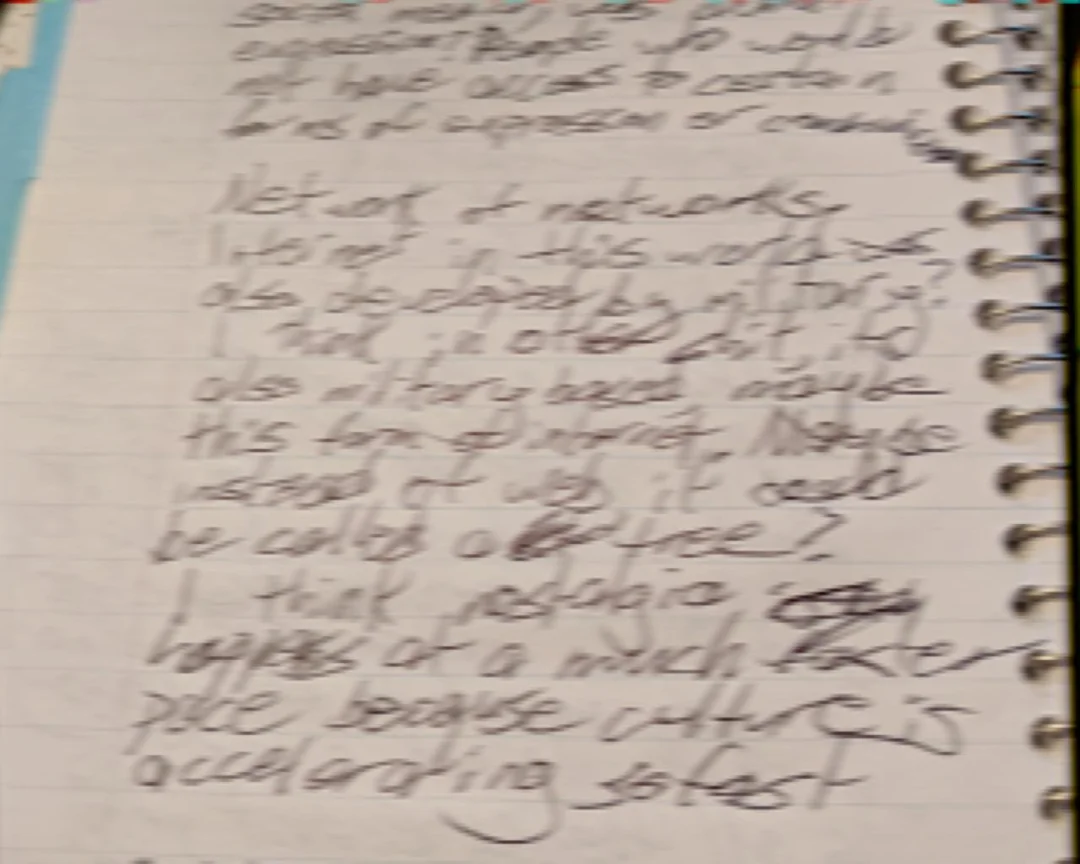 social media,
expression? People who would
not have access to certain
forms of expression or
Network of networks.
Internet in this world was
also developed by military?
I think in other shit, it's
also military based maybe
this form of internet. Maybe
instead of web it could
be called a tree?
I think nostalgia
happens at a much faster
pace because culture is
accelerating so fast